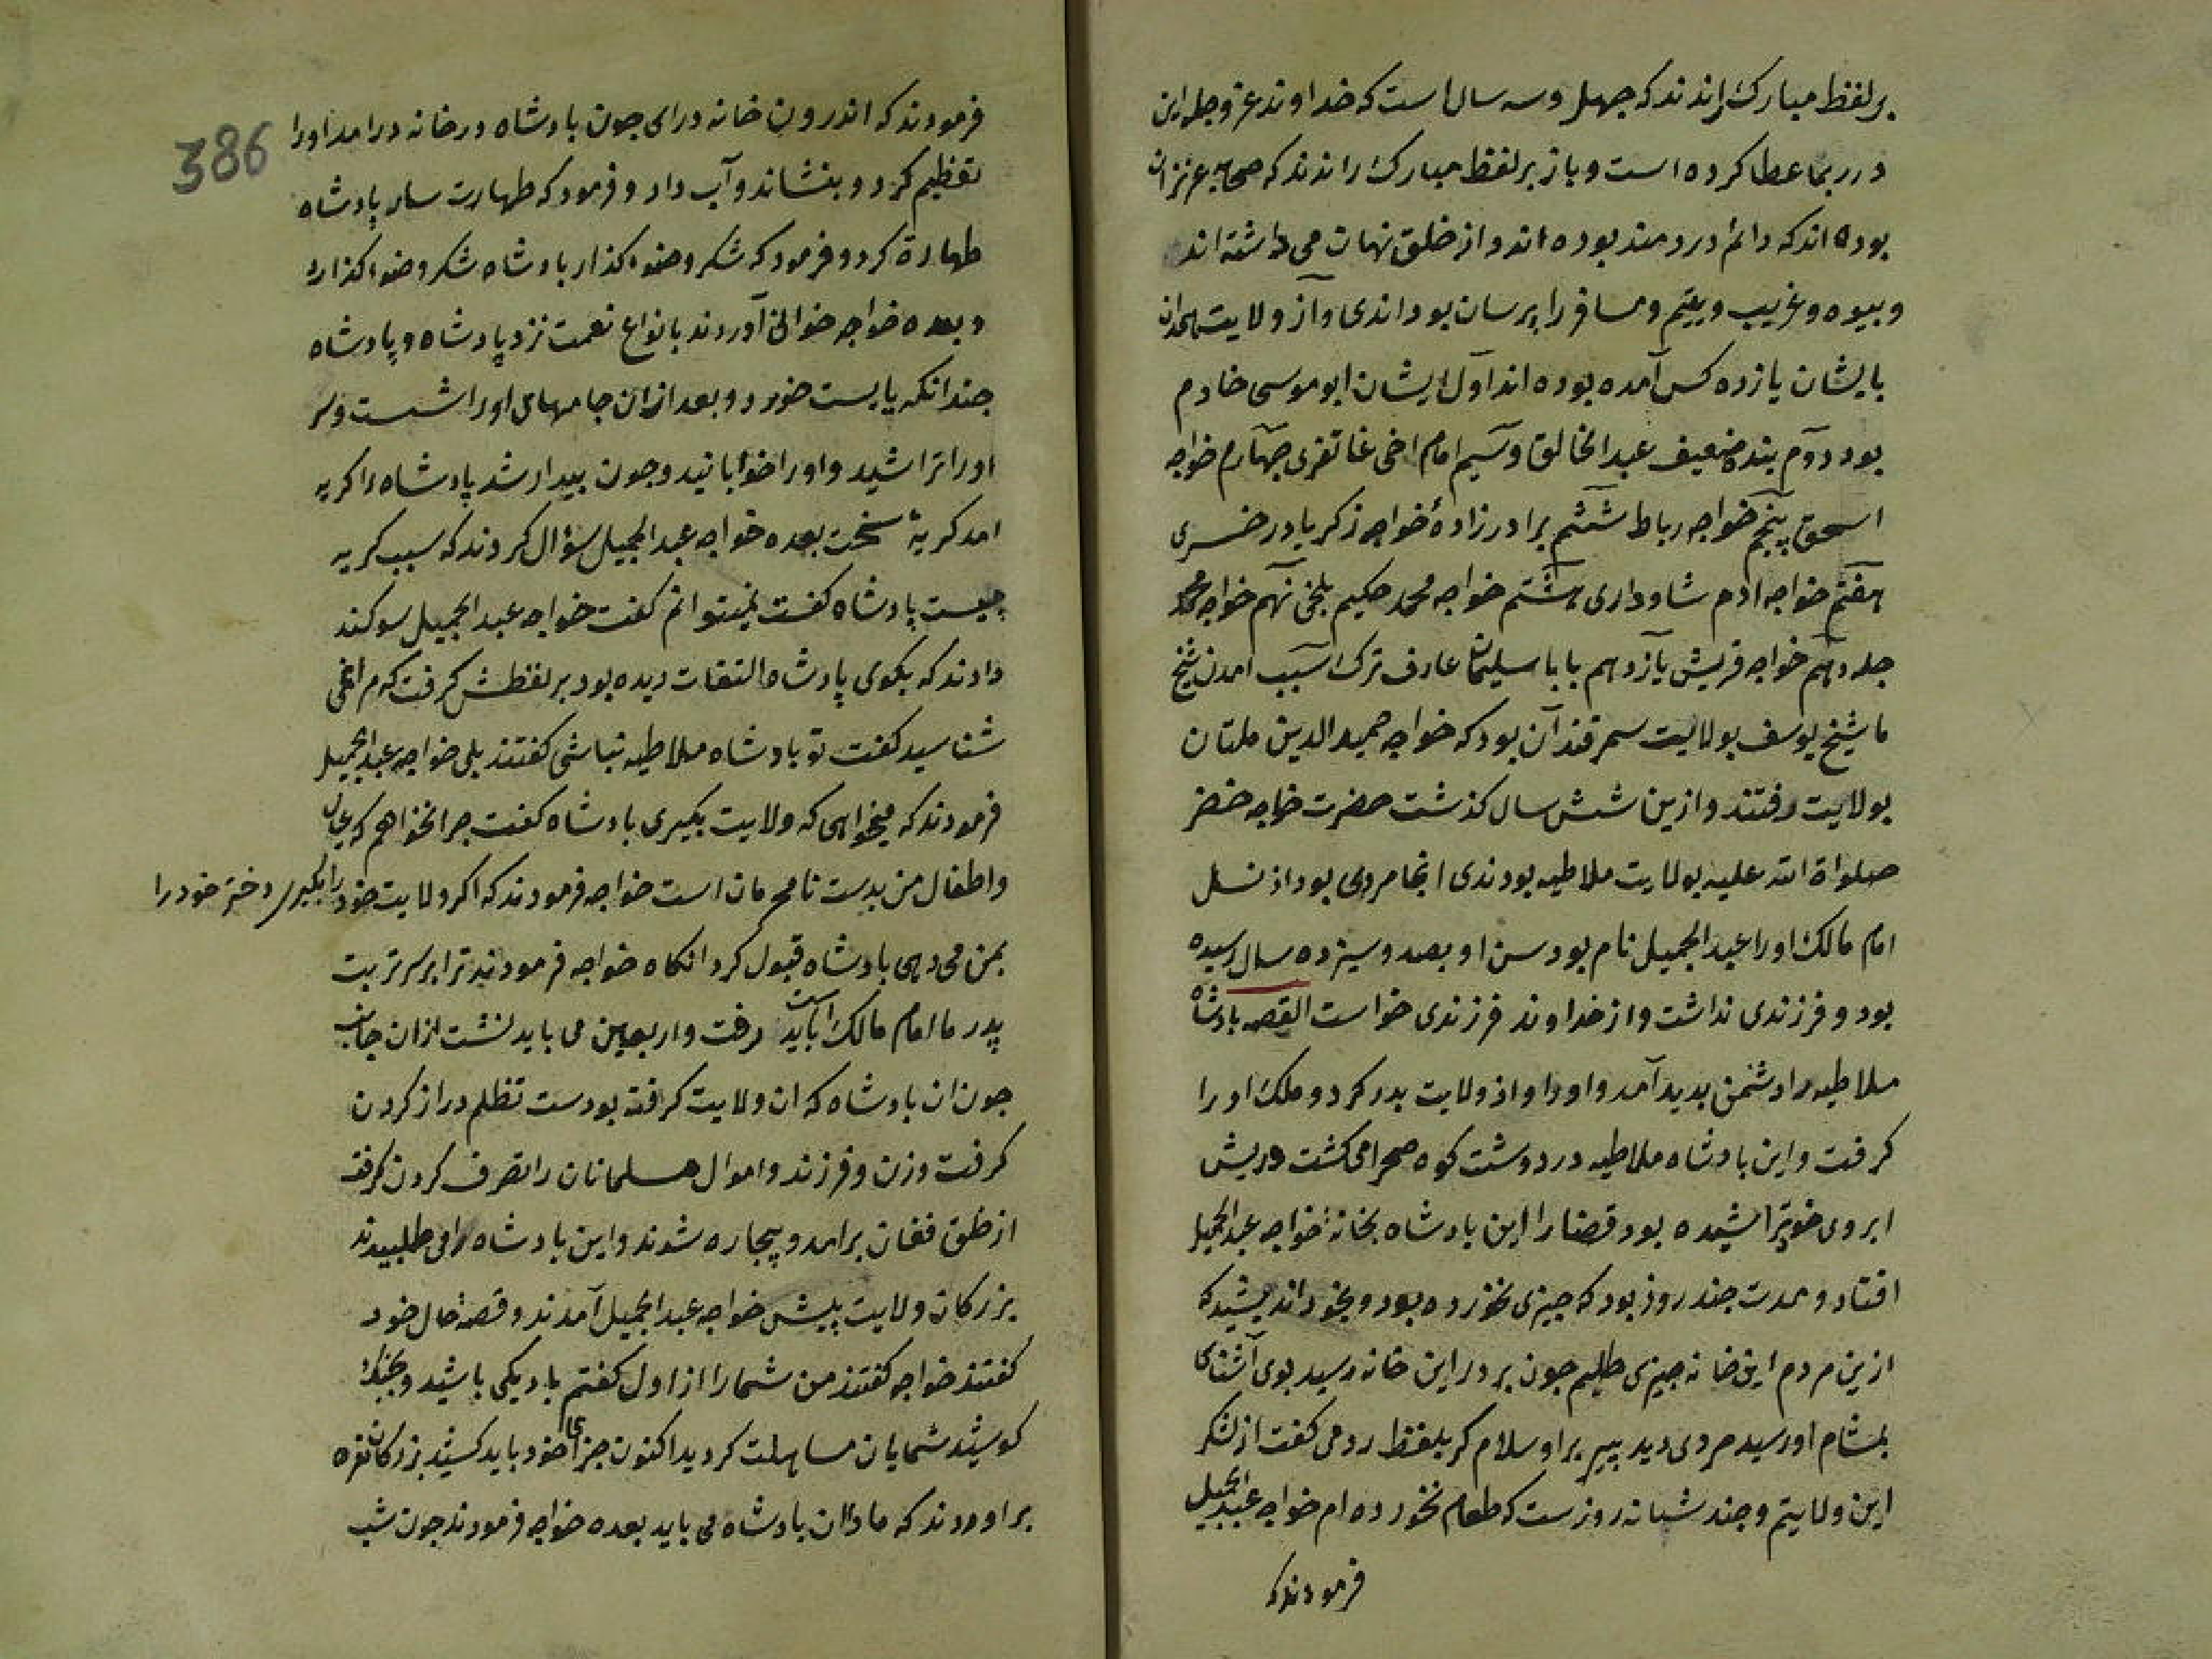 بر لفظ مبارک راندند که چهل و سه سال است که خداوند عز و جل این
درد بما عطا کرده است و باز بر لفظ مبارک راندند که صحابه عزیزان
بوده اند که دائم دردمند بوده اند و از خلق نهان می داشته اند
و بیوه و غریب و یتیم و مسافر را پرسان بوداندی و از ولایت همدان
بایشان یازده کس آمده بوده اند اول ایشان ابو موسی خادم
بود دوم بنده ضعیف عبد الخالق و سیم امام اخی غاتفری چهارم خواجه
اسحق پنجم خواجه رباط ششم برادرزادهٔ خواجه زکریا در خسری
هفتم خواجه ادم شاوداری هشتم خواجه محمد حکیم بلخی نهم خواجه محمد
جله دهم خواجه قریش یازدهم بابا سلیمان عارف ترک سبب امدن شیخ
ما شیخ یوسف بولایت سمرقند آن بود که خواجه حمید الدین ملتان
بولایت رفتند و ازین شش سال کذشت حضرت خواجه خضر
صلواة الله علیه بولایت ملاطیه بودندی انجا مردی بود از نسل
امام مالک او را عبد الجمیل نام بود سن او بصد و سیزده سال رسیده
بود و فرزندی نداشت و از خداوند فرزندی خواست القصه بادشاه
ملاطیه را دشمن بدید آمد و او را از ولایت بدر کرد و ملک او را
کرفت و این بادشاه ملاطیه در دوشت کوه صحرا می کشت و ریش
ابروی خود تراشیده بود قضا را این بادشاه بخانهٔ خواجه عبد الجمیل
افتاد و مدت چند روز بود که چیزی نخورده بود و بخود اندیشید که
ازین مردم این خانه چیزی طلبم چون بر در این خانه رسید بوی آشنای
بمشام او رسید مردی دید پیر بر او سلام کرد بلفظ رومی کفت از لشکر
این ولایتم و چند شبانه روز ست که طعام نخورده ام خواجه عبد الجمیل
فرمودند که
386
فرمودند که اندرون خانه درای جون بادشاه در خانه درامد او را
تعظیم کرد و بنشاند و آب داد و فرمود که طهارت ساز پادشاه
طهارة کرد و فرمود که شکر وضوء کذار بادشاه شکر وضوء کذارد
و بعده خواجه خوانی آوردند بانواع نعمت نزد پادشاه و پادشاه
جندانکه بایست خورد و بعد ازان جامهای او را شست و سر
او را تراشید و او را خوابانید و جون بیدار شد پادشاه را کریه
امد کریهٔ سخت بعده خواجه عبد الجمیل سؤال کردند که سبب کریه
چیست پادشاه کفت نمیتوانم کفت خواجه عبد الجمیل سوکند
دادند که بکوی پادشاه التفات دیده بود بر لفظش کرفت که مرا نمی
شناسید کفت تو بادشاه ملاطیه نباشی کفتند بلی خواجه عبد الجمیل
فرمودند که میخواهی که ولایت بکیری بادشاه کفت جرا نخواهم که عیال
و اطفال من بدست نامحرمان است خواجه فرمودند که اکر ولایت خود را بکیری دختر خود را
بمن می دهی بادشاه قبول کرد انکاه خواجه فرمودند ترا بر سر تربت
پدر ما امام مالک اناست باید رفت و اربعین می باید نشت ازان جانب
جون ان بادشاه که ان ولایت کرفته بود ست تظلم دراز کردن
کرفت و زن و فرزند و اموال مسلمانان را تصرف کردن کرفت
از خلق فغان برامد و بیجاره شدند و این بادشاه را می طلبیدند
بزرکان ولایت پیش خواجه عبد الجمیل آمدند و قصهٔ حال خود
کفتند خواجه کفتند من شما را از اول کفتم با دیکی باشید و بجنک
کوشید شمایان مساهلت کردید اکنون جزای خود باید کشید بزرکان نعره
براوردند که ما را ان بادشاه می باید بعده خواجه فرمودند جون شب